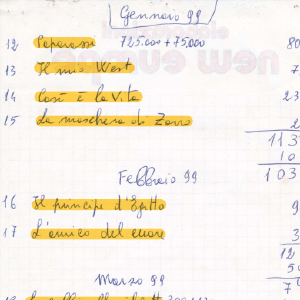 Gennaio 99
12 Paparazzi 725.000+75.000 80
13 Il mio West 7
14 Così è la vita 23
15 La maschera di Zorro 2
113
10
103
Febbraio 99
16 Il principe d'Egitto 9
17 L'amico del cuore 3
12
50
7
Marzo 99